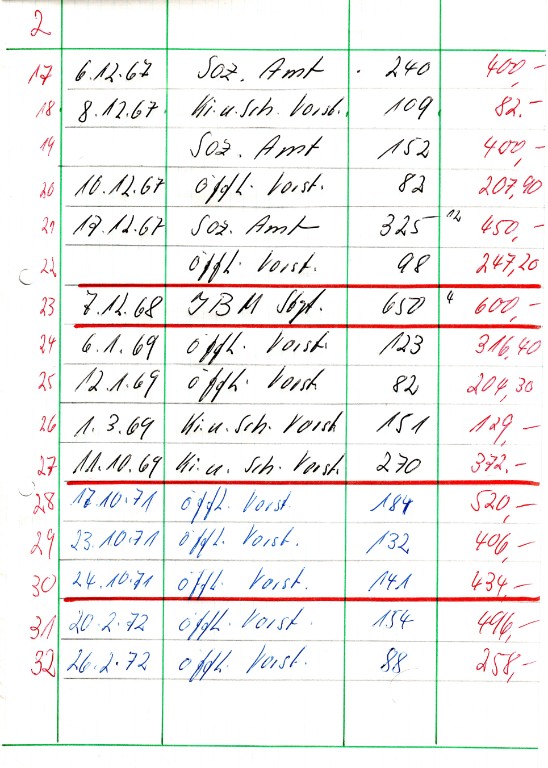 2
17 6.12.67 Soz. Amt 240 400,-
18 8.12.67 Ki.u.Sch. Vorst. 109 82.-
19 Soz. Amt 152 400,-
20 10.12.67 öffl. Vorst. 82 207,90
21 17.12.67 Soz. Amt 325 12 450,-
22 öffl. Vorst. 98 247,20
23 7.12.68 IBM 650 4 600,-
24 6.1.69 öffl. Vorst. 123 316,40
25 12.1.69 öffl. Vorst. 82 204,30
26 1.3.69 Ki.u.Sch. Vorst 151 129,-
27 11.10.69 Ki.u.Sch. Vorst. 270 372.-
28 17.10.71 öffl. Vorst. 184 520,-
29 23.10.71 öffl. Vorst. 132 406,-
30 24.10.71 öffl. Vorst. 141 434,-
31 20.2.72 öffl. Vorst. 154 496,-
32 26.2.72 öffl. Vorst. 88 258,-